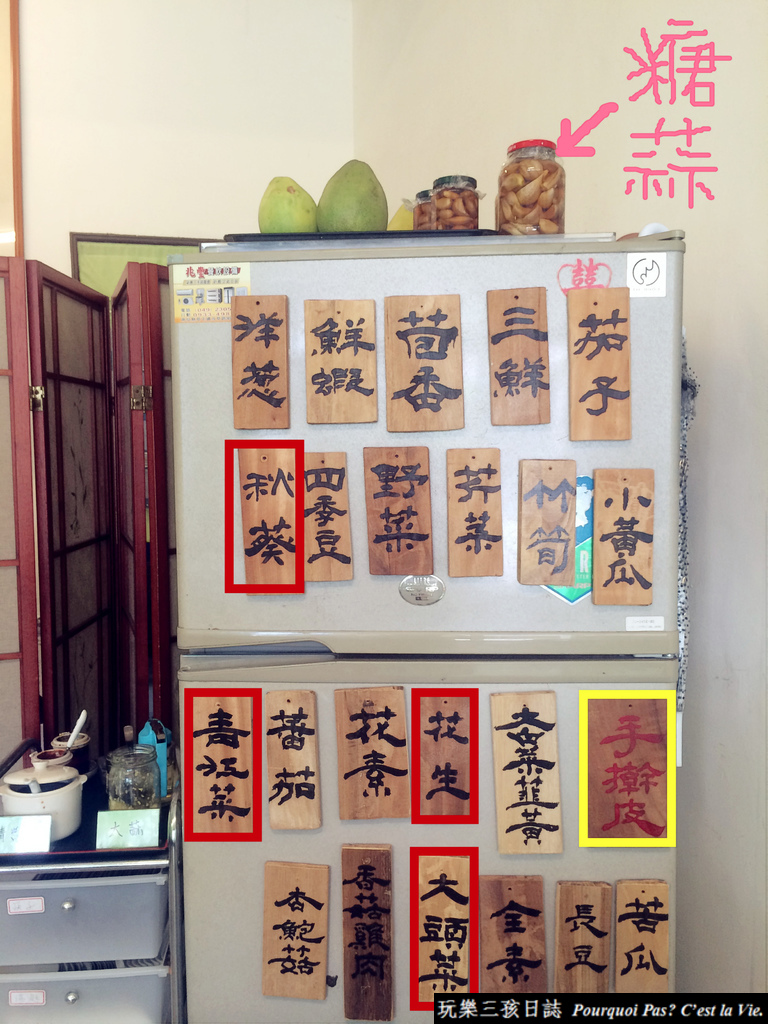 糖
蒜
囍
洋蔥
鮮蝦
茴香
三鮮
茄子
秋葵
四季豆
野菜
芥菜
竹筍
小黃瓜
青江菜
蕃茄
花素
花生
大白菜韮黃
手擀皮
大蒜
杏鮑菇
香菇雞肉
大頭菜
全素
長豆
苦瓜
玩樂三孩日誌 Pourquoi Pas? C'est la Vie.